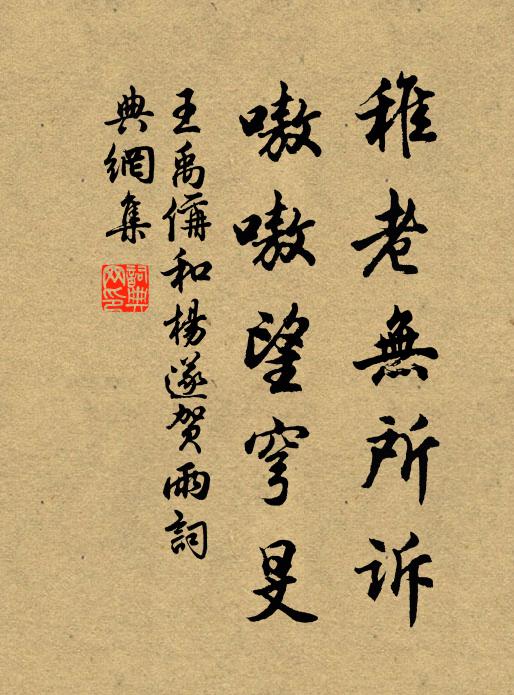 稚老無所诉
嗷嗷望穹旻
王禹偁和楊遂贺雨詞
典網集
詞典网印